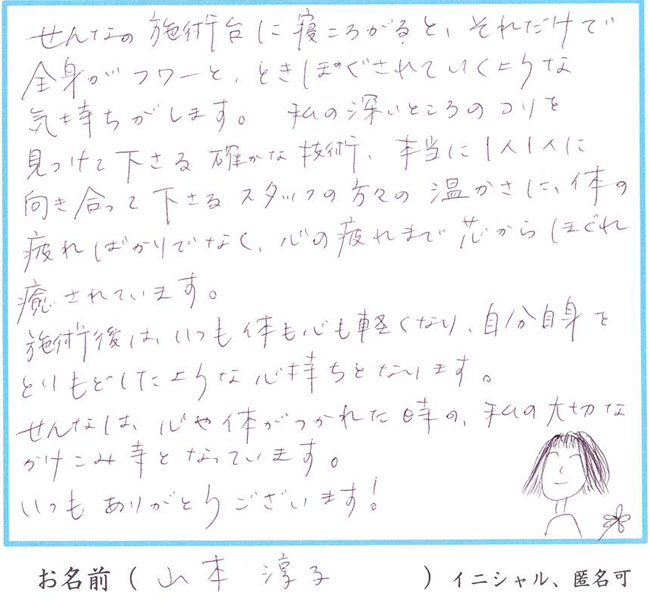 せんなの施術台に寝ころがると、それだけで
全身がフワーと、ときほぐされていくような
気持ちがします。私の深いところのコリを
見つけて下さる確かな技術、本当に1人1人に
向き合って下さるスタッフの方々の温かさに、体の
疲ればかりでなく、心の疲れまで芯からほぐれ
癒されています。
施術後は、いつも体も心も軽くなり、自分自身を
とりもどしたような心持ちとなります。
せんなは、心や体がつかれた時の、私の大切な
かけこみ寺となっています。
いつもありがとうございます!
お名前(山本淳子)イニシャル、匿名可